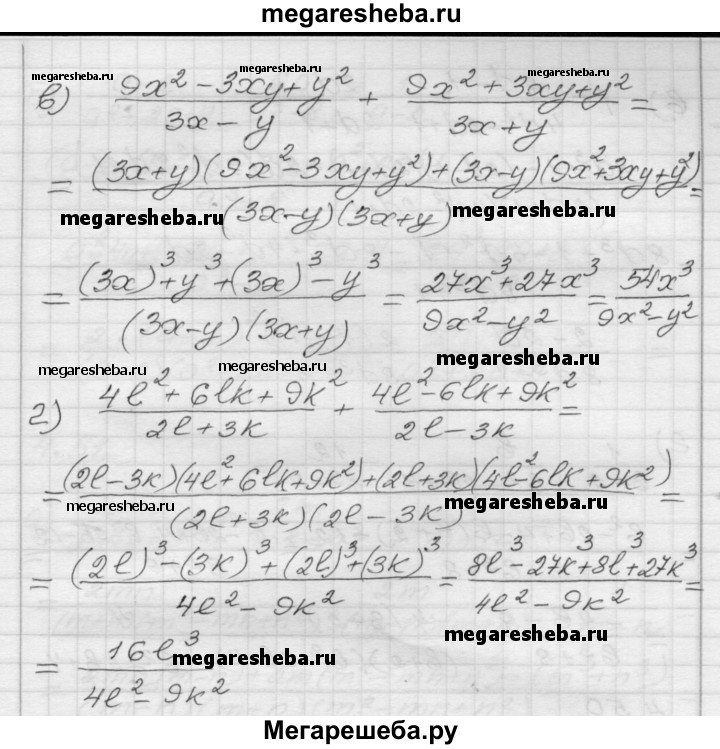 megaresheba.ru
megaresheba.ru megaresheba.ru megaresheba.ru
в) (9x² - 3xy + y²)/(3x - y) + (9x² + 3xy + y²)/(3x + y) =
= ((3x+y)(9x² - 3xy + y²) + (3x-y)(9x² + 3xy + y²))/((3x-y)(3x+y)) =
megaresheba.ru megaresheba.ru
= ((3x)³ + y³ + (3x)³ - y³)/((3x-y)(3x+y)) = (27x³ + 27x³)/(9x² - y²) = 54x³/(9x² - y²)
megaresheba.ru
megaresheba.ru megaresheba.ru
г) (4l² + 6lk + 9k²)/(2l + 3k) + (4l² - 6lk + 9k²)/(2l - 3k) =
= ((2l - 3k)(4l² + 6lk + 9k²) + (2l + 3k)(4l² - 6lk + 9k²))/((2l + 3k)(2l - 3k)) =
megaresheba.ru megaresheba.ru
= ((2l)³ - (3k)³ + (2l)³ + (3k)³)/(4l² - 9k²) = (8l³ - 27k³ + 8l³ + 27k³)/(4l² - 9k²) =
megaresheba.ru
= 16l³/(4l² - 9k²)
megaresheba.ru megaresheba.ru
Мегарешеба.ру